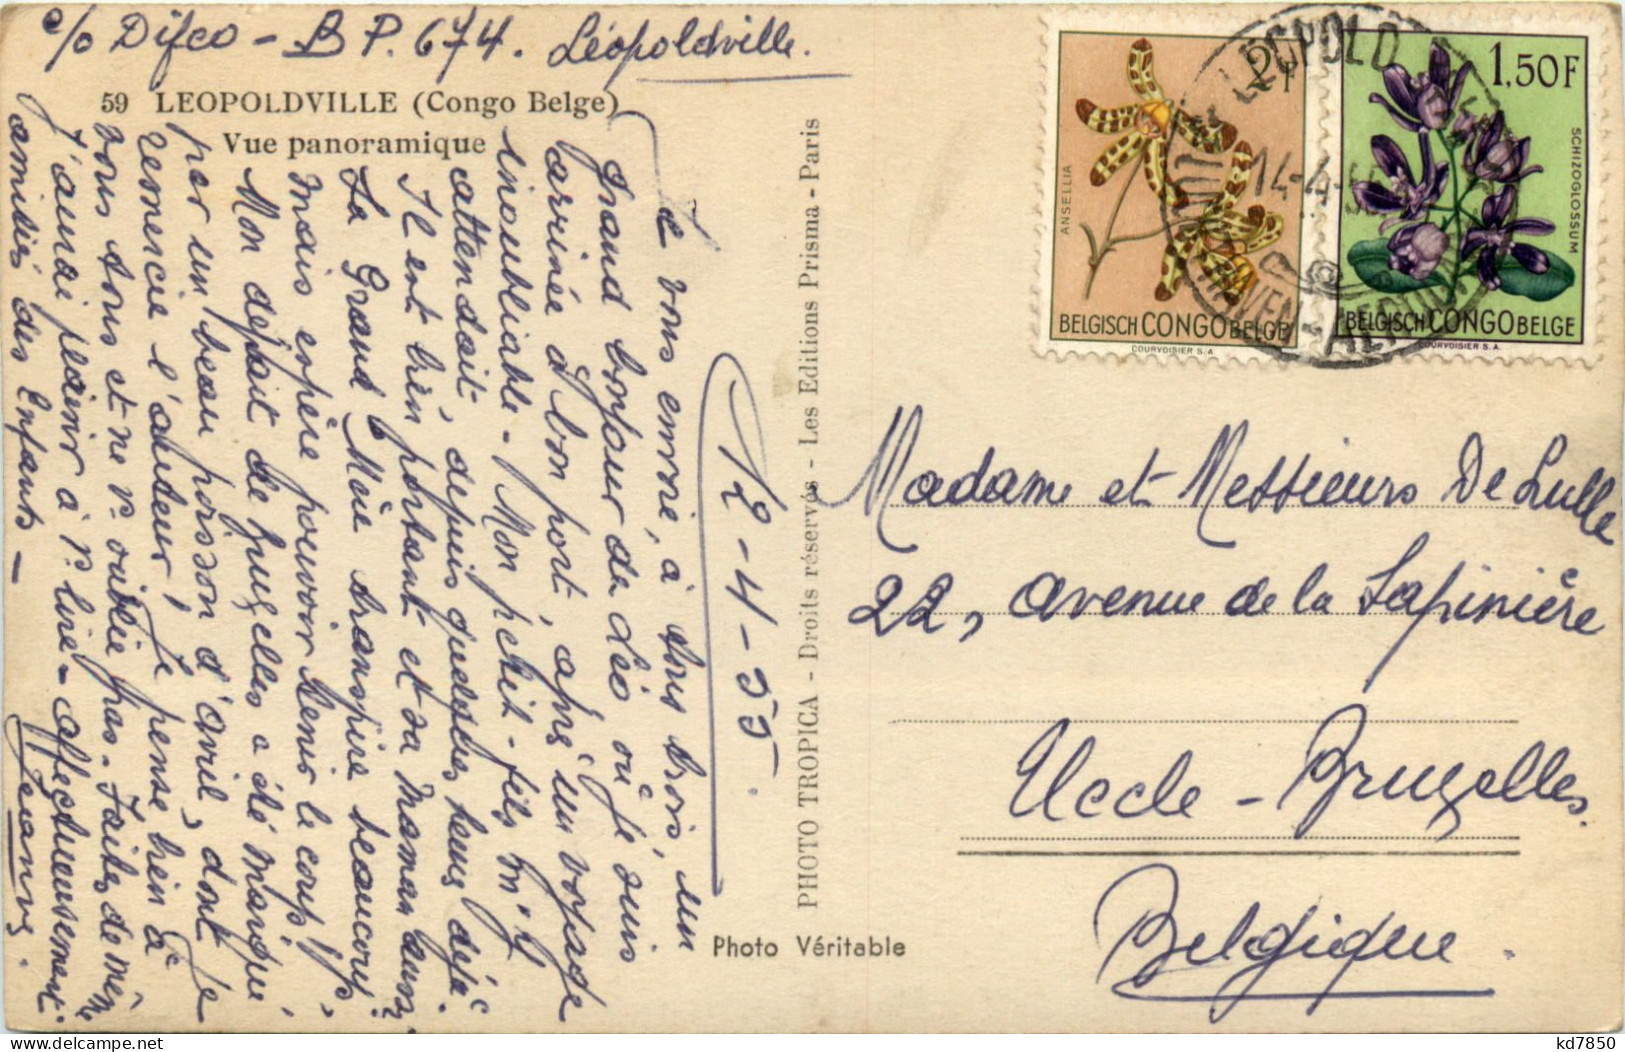 c/o Difco - B P. 674. Léopoldville.
59 LEOPOLDVILLE (Congo Belge)
Vue panoramique
12-4-55
Je vous envoie, à vous trois, un
grand bonjour de Léo où je suis
arrivée à bon port, après un voyage
inoubliable - Mon petit-fils m'y
attendait, depuis quelques heures déjà.
Il est bien portant et sa maman aussi
La Grand Mère transpire beaucoup
mais espère pouvoir tenir le coup!!
Mon départ de Bruxelles a été marqué
par un beau poisson d'avril, dont je
remercie l'auteur! Je pense bien à
vous tous et ne v. oublie pas. Faites de même
J'aurai plaisir à v. lire - affectueusement
amitiés des Enfants -
Jeanne.
PHOTO TROPICA - Droits réservés - Les Editions Prisma - Paris
Photo Véritable
2F
ANSELLIA
BELGISCH CONGO BELGE
COURVOISIER S.A.
1,50F
SCHIZOGLOSSUM
BELGISCH CONGO BELGE
COURVOISIER S.A.
LEOPOLD
14-4-55
Madame et Messieurs De Lulle
22, avenue de la Sapinière
Uccle - Bruxelles.
Belgique.
kd7850